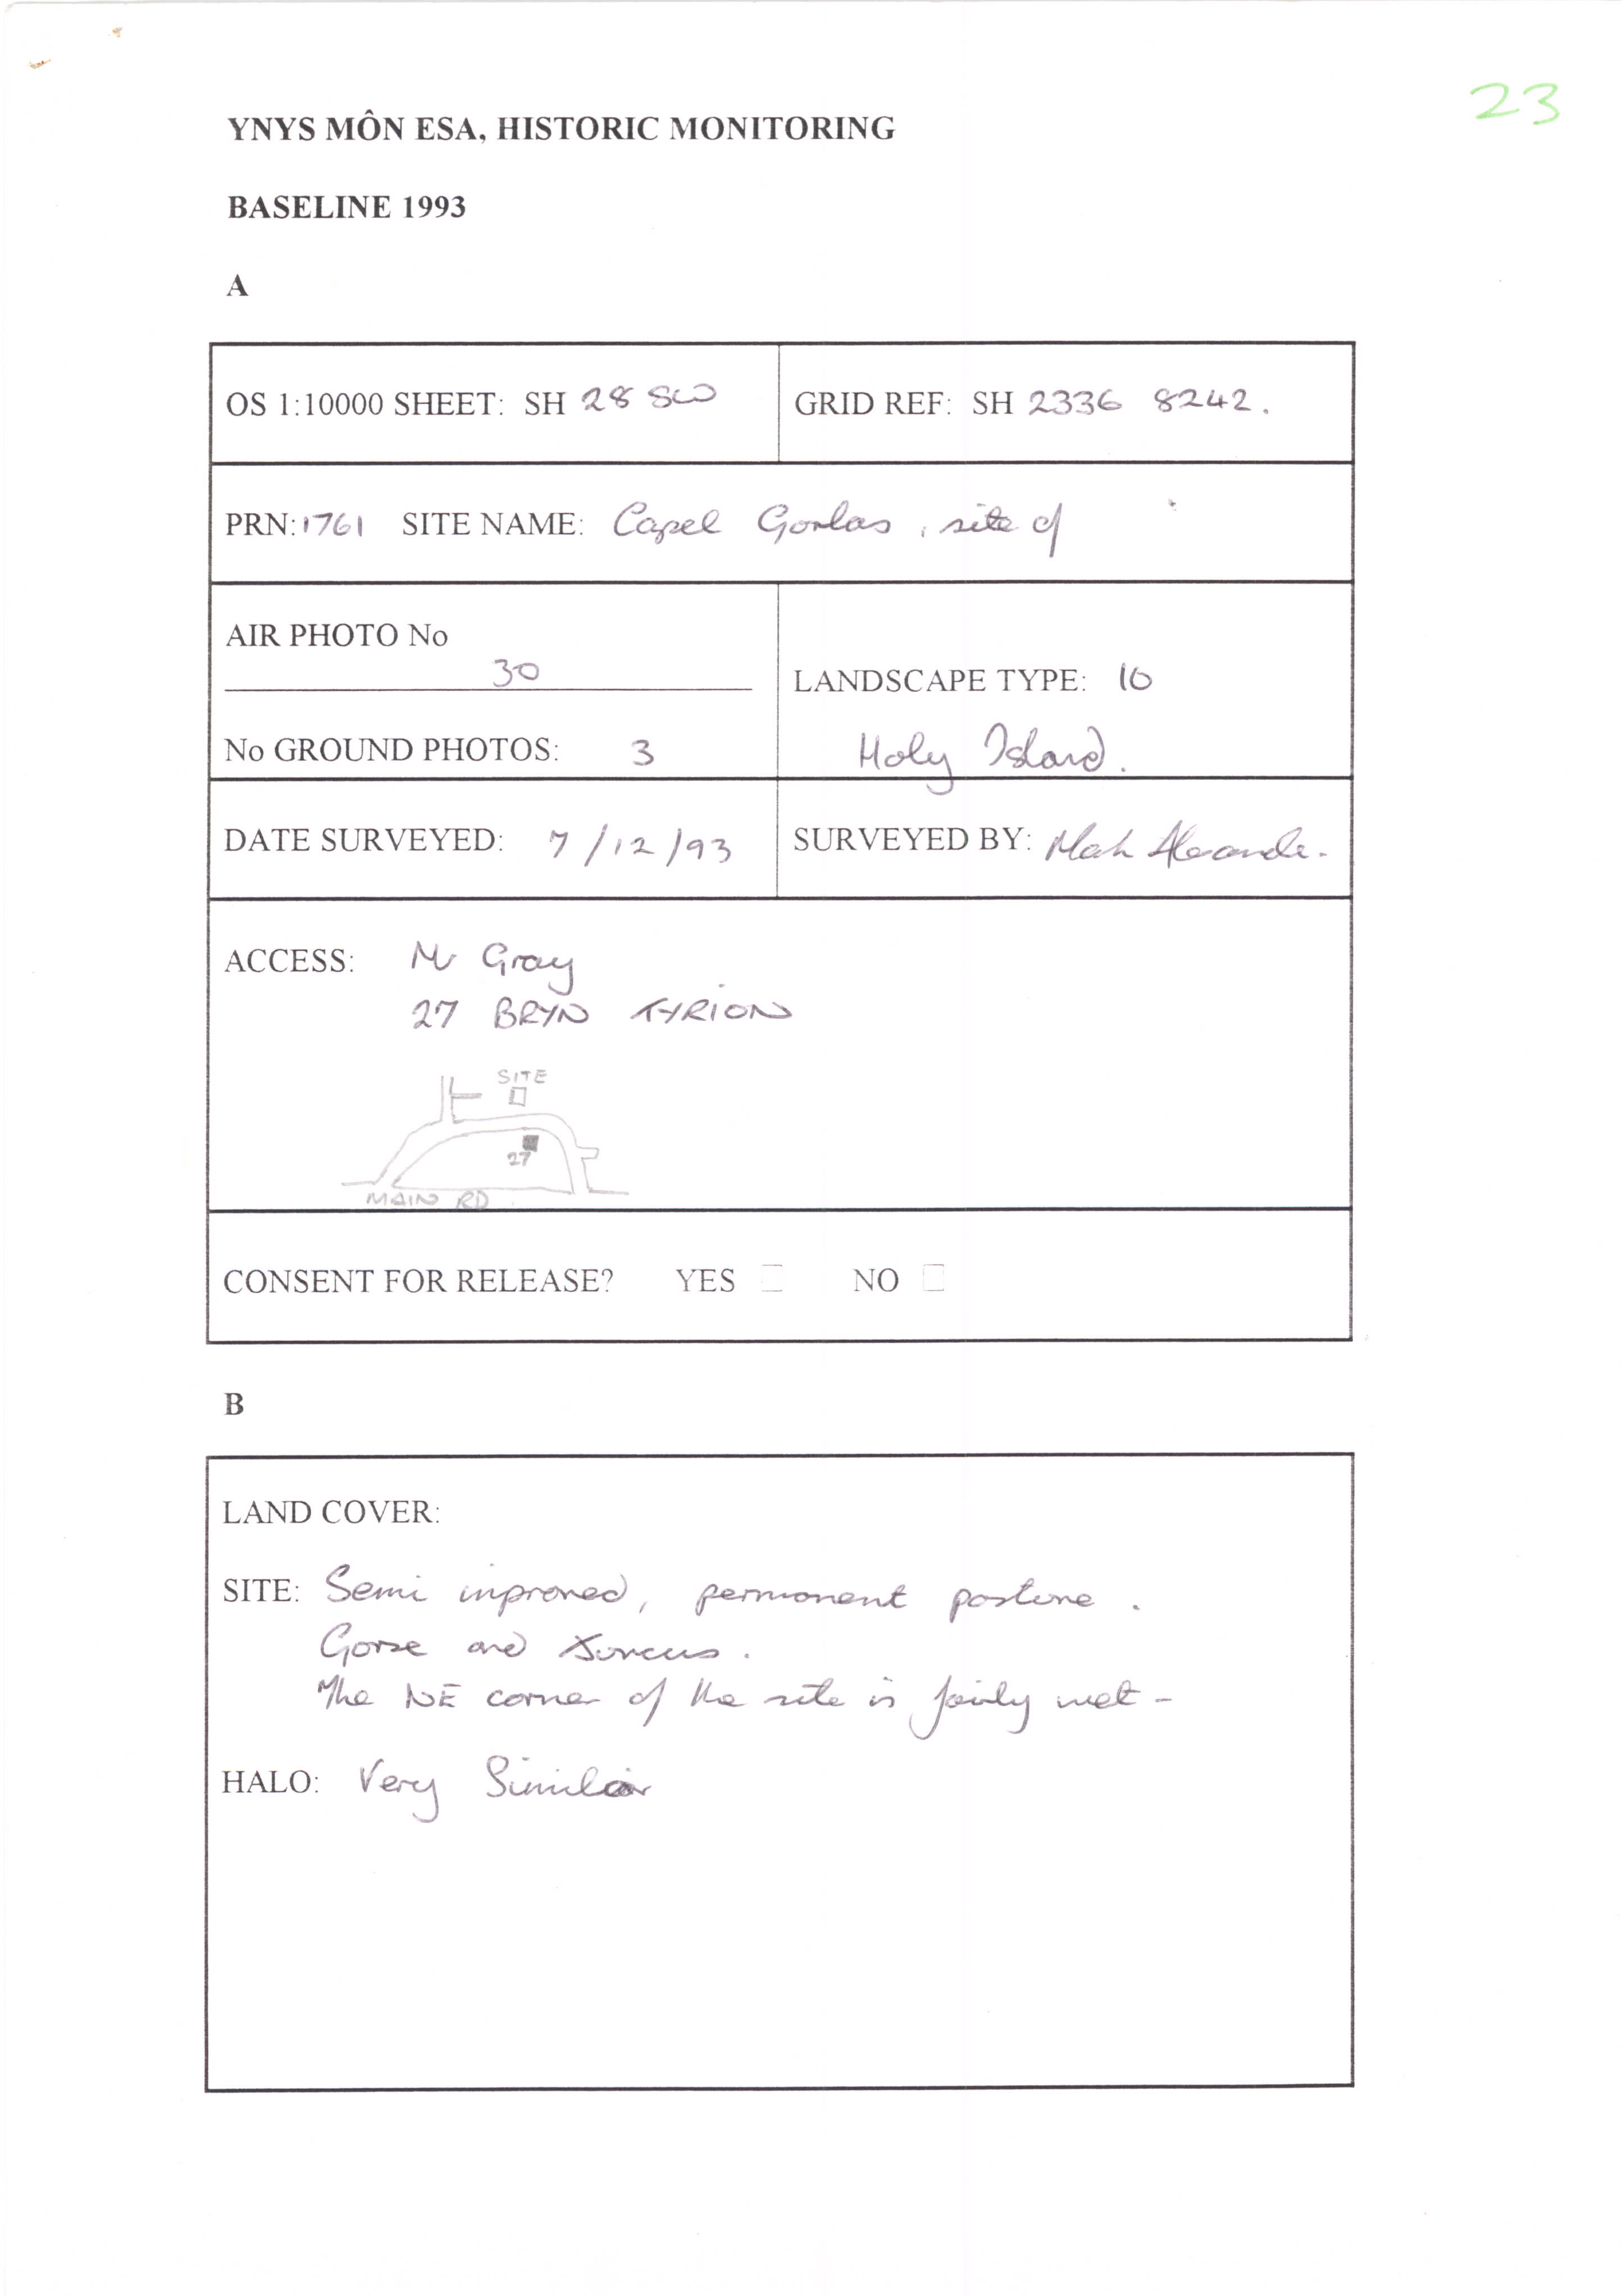 23
YNYS MÔN ESA, HISTORIC MONITORING
BASELINE 1993
A
OS 1:10000 SHEET: SH 28 SW
GRID REF: SH 2336 8242.
PRN: 1761 SITE NAME: Capel Gorlas, site of
AIR PHOTO No
30
No GROUND PHOTOS: 3
LANDSCAPE TYPE: 10
Holy Island.
DATE SURVEYED: 7/12/93
SURVEYED BY:
ACCESS: Mr Gray
27 BRYN TYRION
SITE
27
MAIN RD
CONSENT FOR RELEASE? YES NO
B
LAND COVER:
SITE: Semi improved, permanent pasture.
Gorse and Juncus.
The NE corner of the site is fairly wet -
HALO: Very Similar